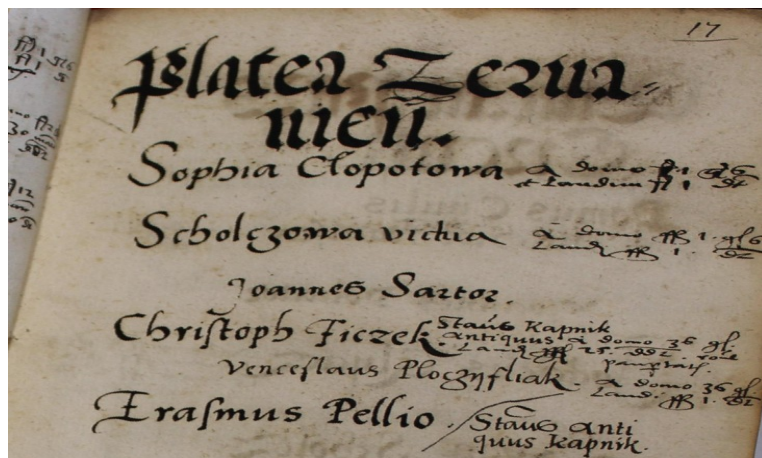 17
Platea Zerwa-
nien.
Sophia Clopotowa a domo fl 1 gl 6
et Laudum fl 1 dt
Scholczowa vidua a domo ffl 1. gl 6
Laud. ffl 1. dt
Joannes Sartor.
Christoph Ficzek. Staus Kapnik
antiquus a domo 36 gl.
Laud. ffl
Venceslaus Ploczysliak. a domo 36 gl
Laud. ffl 1. dt
Erasmus Pellio. Staus Anti
quus Kapnik.